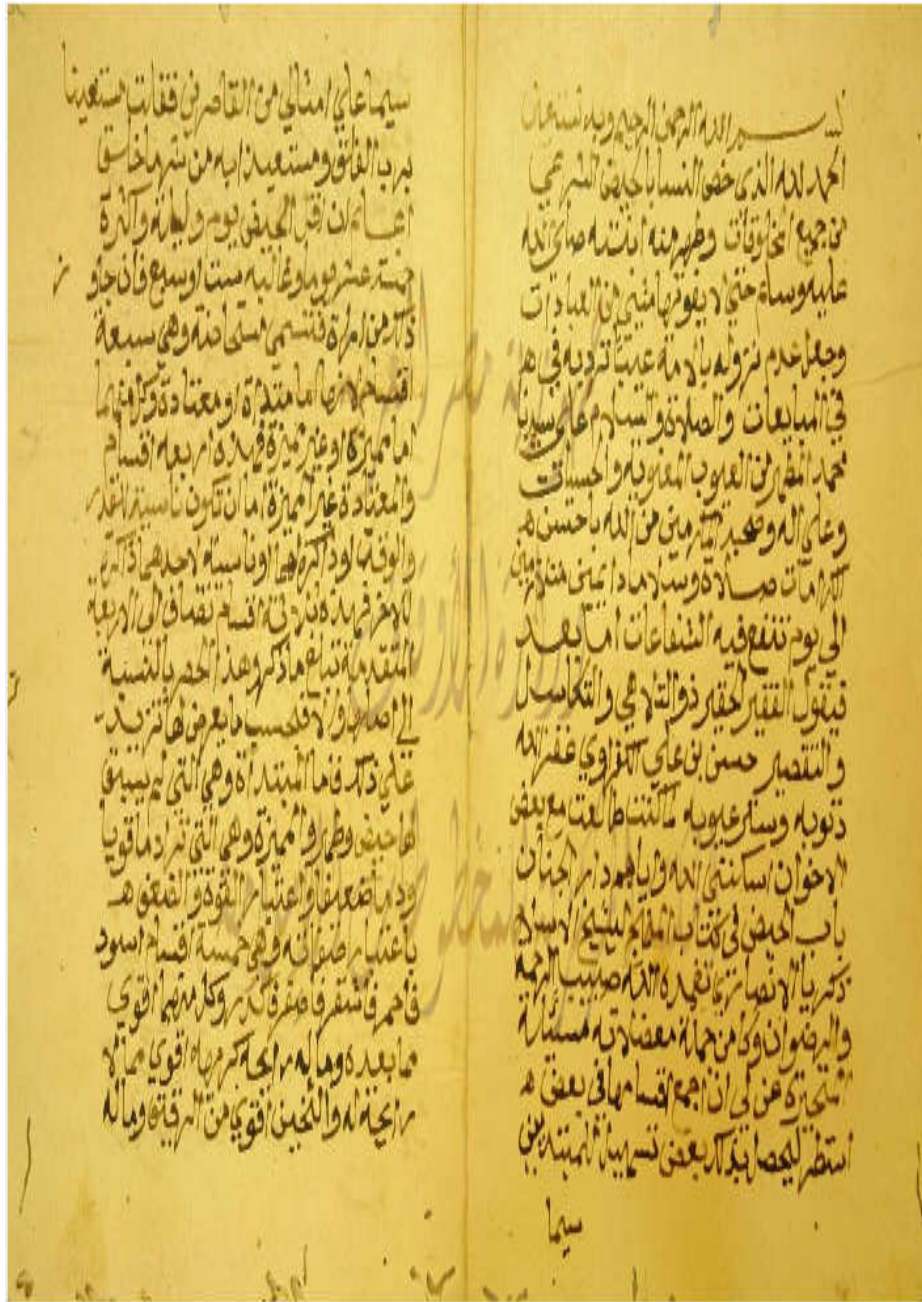 بسم الله الرحمن الرحيم وبه نستعين
الحمد لله الذي خص النسا بالحيض الشرعي
من جميع المخلوقات وطهر منه ابنته صلي الله
عليه وسلم حتي لا يفوتها شي من العبادات
وجعل عدم نزوله بالامة عيبا ترد به في
في المبايعات والصلاة والسلام علي سيدنا
محمد المطهر من العيوب المعنويه والحسيات
وعلي اله وصحبه المكرمين من الله باحسن
الكرامات صلاة وسلاما دائمين متلازمين
الي يوم تنفع فيه الشفاعات اما بعد
فيقول الفقير الحقير ذو التلاهي والتكاسل
والتقصير حسين بن علي الكفراوي غفر الله
ذنوبه وستر عيوبه لما كنت طالعت مع بعض
الاخوان اسكنني الله واياهم دار الجنان
باب الحيض في كتاب المنهج لشيخ الاسلا
زكريا الانصاري تغمده الله صبيب الرحمه
والرضوان وكان من جملة معضلاته مسئلة
المتحيرة عن لي ان اجمع اقسامها في بعض
اسطر ليحصل بذلك بعض تسهيل للمبتديين
سيما
سيما علي امثالي من القاصرين فقلت مستعينا
برب الفلق ومستعيذا به من شر ما خلق
اعلم ان اقل الحيض يوم وليلة واكثره
خمسة عشر يوما وغالبه ست او سبع فان جاوز
ذلك من امراة فتسمي مستحاضة وهي سبعة
اقسام لانها اما مبتداة او معتادة وكل منهما
اما مميزة او غير مميزة فهذه اربعه اقسام
والمعتادة غير المميزة اما ان تكون ناسية للقدر
والوقت او ذاكرة لهما او ناسية لاحدهما ذاكرة
للاخر فهذه ثلاثة اقسام تضاف الي الاربعة
المتقدمة تبلغ ما ذكر وهذا الحصر بالنسبة
الي اصلها والا فبحسب ما يعرض لها تزيد
علي ذلك فاما المبتداة وهي التي لم يسبق
لها حيض وطهر والمميزة وهي التي ترا دما قويا
ودما ضعيفا واعتبار القوة والضعف
باعتبار صفاته وهي خمسة اقسام اسود
فاحمر فاشقر فاصفر فاكدر وكل منهما اقوي
مما بعده وما له رائحة كريهه اقوي مما لا
رائحة له والثخين اقوي من الرقيق وما له